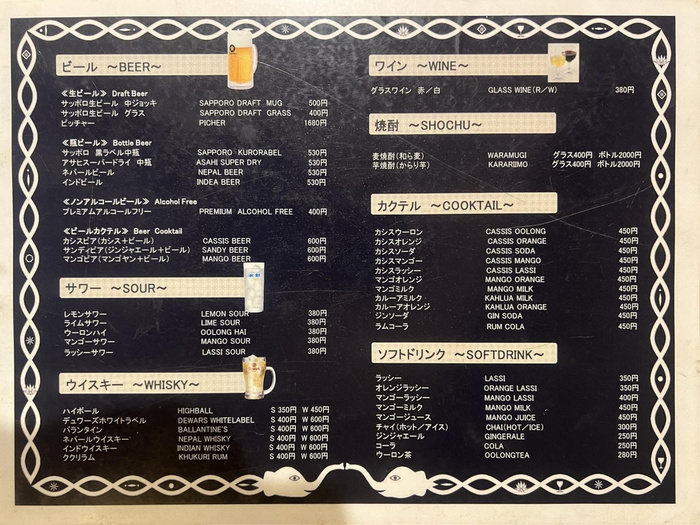 ビール ～BEER～
≪生ビール≫ Draft Beer
サッポロ生ビール 中ジョッキ SAPPORO DRAFT MUG 500円
サッポロ生ビール グラス SAPPORO DRAFT GRASS 400円
ピッチャー PICHER 1680円
≪瓶ビール≫ Bottle Beer
サッポロ 黒ラベル中瓶 SAPPORO KURORABEL 530円
アサヒスーパードライ 中瓶 ASAHI SUPER DRY 530円
ネパールビール NEPAL BEER 530円
インドビール INDEA BEER 530円
≪ノンアルコールビール≫ Alcohol Free
プレミアムアルコールフリー PREMIUM ALCOHOL FREE 400円
≪ビールカクテル≫ Beer Cooktail
カシスビア(カシス+ビール) CASSIS BEER 600円
サンディビア(ジンジャエール+ビール) SANDY BEER 600円
マンゴビア(マンゴヤン+ビール) MANGO BEER 600円
サワー ～SOUR～
レモンサワー LEMON SOUR 380円
ライムサワー LIME SOUR 380円
ウーロンハイ OOLONG HAI 380円
マンゴーサワー MANGO SOUR 380円
ラッシーサワー LASSI SOUR 380円
ウイスキー ～WHISKY～
ハイボール HIGHBALL S 350円 W 450円
デュワーズホワイトラベル DEWARS WHITELABEL S 400円 W 600円
バランタイン BALLANTINE'S S 400円 W 600円
ネパールウイスキー NEPAL WHISKY S 400円 W 600円
インドウイスキー INDIAN WHISKY S 400円 W 600円
ククリラム KHUKURI RUM S 400円 W 600円
ワイン ～WINE～
グラスワイン 赤／白 GLASS WINE(R／W) 380円
焼酎 ～SHOCHU～
麦焼酎(和ら麦) WARAMUGI グラス400円 ボトル2000円
芋焼酎(からり芋) KARARIIMO グラス400円 ボトル2000円
カクテル ～COOKTAIL～
カシスウーロン CASSIS OOLONG 450円
カシスオレンジ CASSIS ORANGE 450円
カシスソーダ CASSIS SODA 450円
カシスマンゴー CASSIS MANGO 450円
カシスラッシー CASSIS LASSI 450円
マンゴオレンジ MANGO ORANGE 450円
マンゴミルク MANGO MILK 450円
カルーアミルク KAHLUA MILK 450円
カルーアオレンジ KAHLUA ORANGE 450円
ジンソーダ GIN SODA 450円
ラムコーラ RUM COLA 450円
ソフトドリンク ～SOFTDRINK～
ラッシー LASSI 350円
オレンジラッシー ORANGE LASSI 350円
マンゴーラッシー MANGO LASSI 400円
マンゴーミルク MANGO MILK 450円
マンゴージュース MANGO JUICE 450円
チャイ(ホット／アイス) CHAI(HOT／ICE) 300円
ジンジャエール GINGERALE 250円
コーラ COLA 250円
ウーロン茶 OOLONGTEA 280円